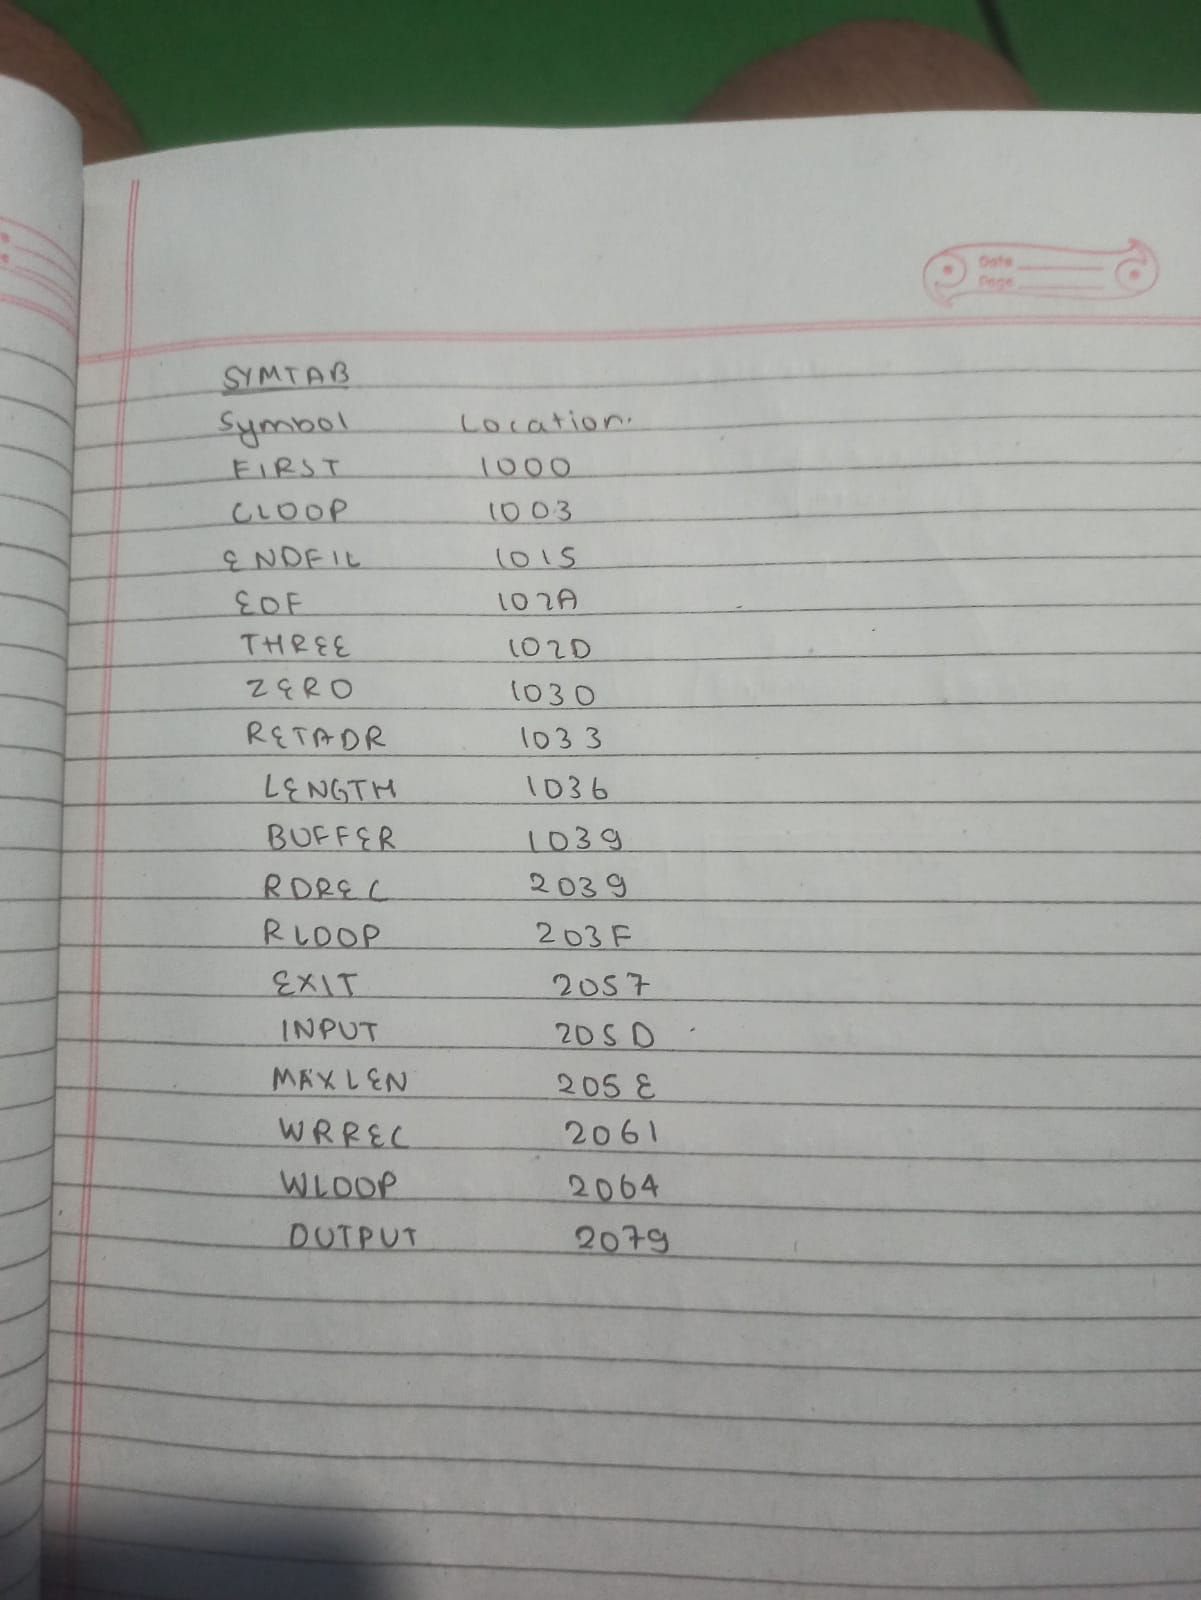 Date
Page
SYMTAB
Symbol Location.
FIRST 1000
CLOOP 1003
ENDFIL 1015
EOF 102A
THREE 102D
ZERO 1030
RETADR 1033
LENGTH 1036
BUFFER 1039
RDREC 2039
RLOOP 203F
EXIT 2057
INPUT 205D
MAXLEN 205E
WRREC 2061
WLOOP 2064
OUTPUT 2079